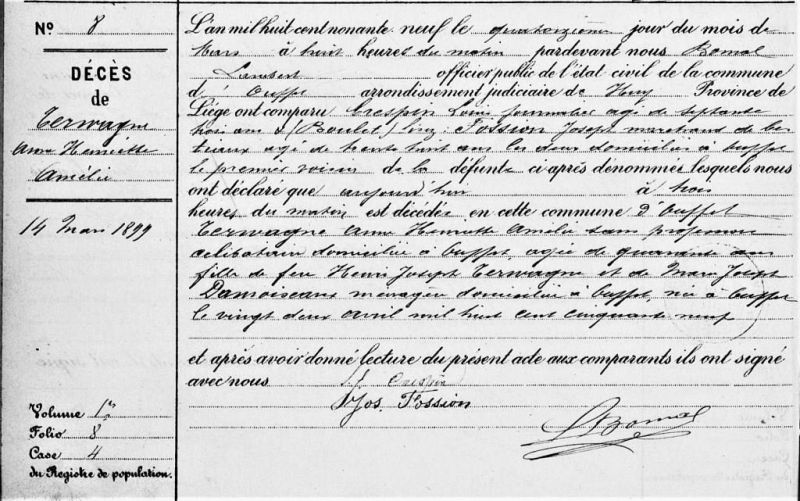 Nº 8
DÉCÈS
de
Terwagne
Anne Henriette
Amélie
14 Mars 1899
Volume 1er
Folio 8
Case 4
du Registre de population.
L'an mil huit cent nonante neuf le quatorzième jour du mois de
Mars à huit heures du matin pardevant nous Bomal
Lambert officier public de l'état civil de la commune
d' Ouffet arrondissement judiciaire de Huy Province de
Liége ont comparu Crespin Louis journalier agé de septante
trois ans & (Boulet) Fossion Joseph marchand de bes
tiaux agé de trente huit ans les deux domiciliés à Ouffet
le premier voisin de la défunte ci après dénommée lesquels nous
ont déclaré que aujourd'hui à trois
heures du matin est décédée en cette commune d'Ouffet
Terwagne Anne Henriette Amélie sans profession
célibataire domiciliée à Ouffet, agée de quarante ans
fille de feu Henri Joseph Terwagne et de Marie Joseph
Damoiseaux ménagère domiciliée à Ouffet, née à Ouffet
le vingt deux avril mil huit cent cinquante neuf
et après avoir donné lecture du présent acte aux comparants ils ont signé
avec nous
L. J. Crespin
Jos. Fossion
LBomal